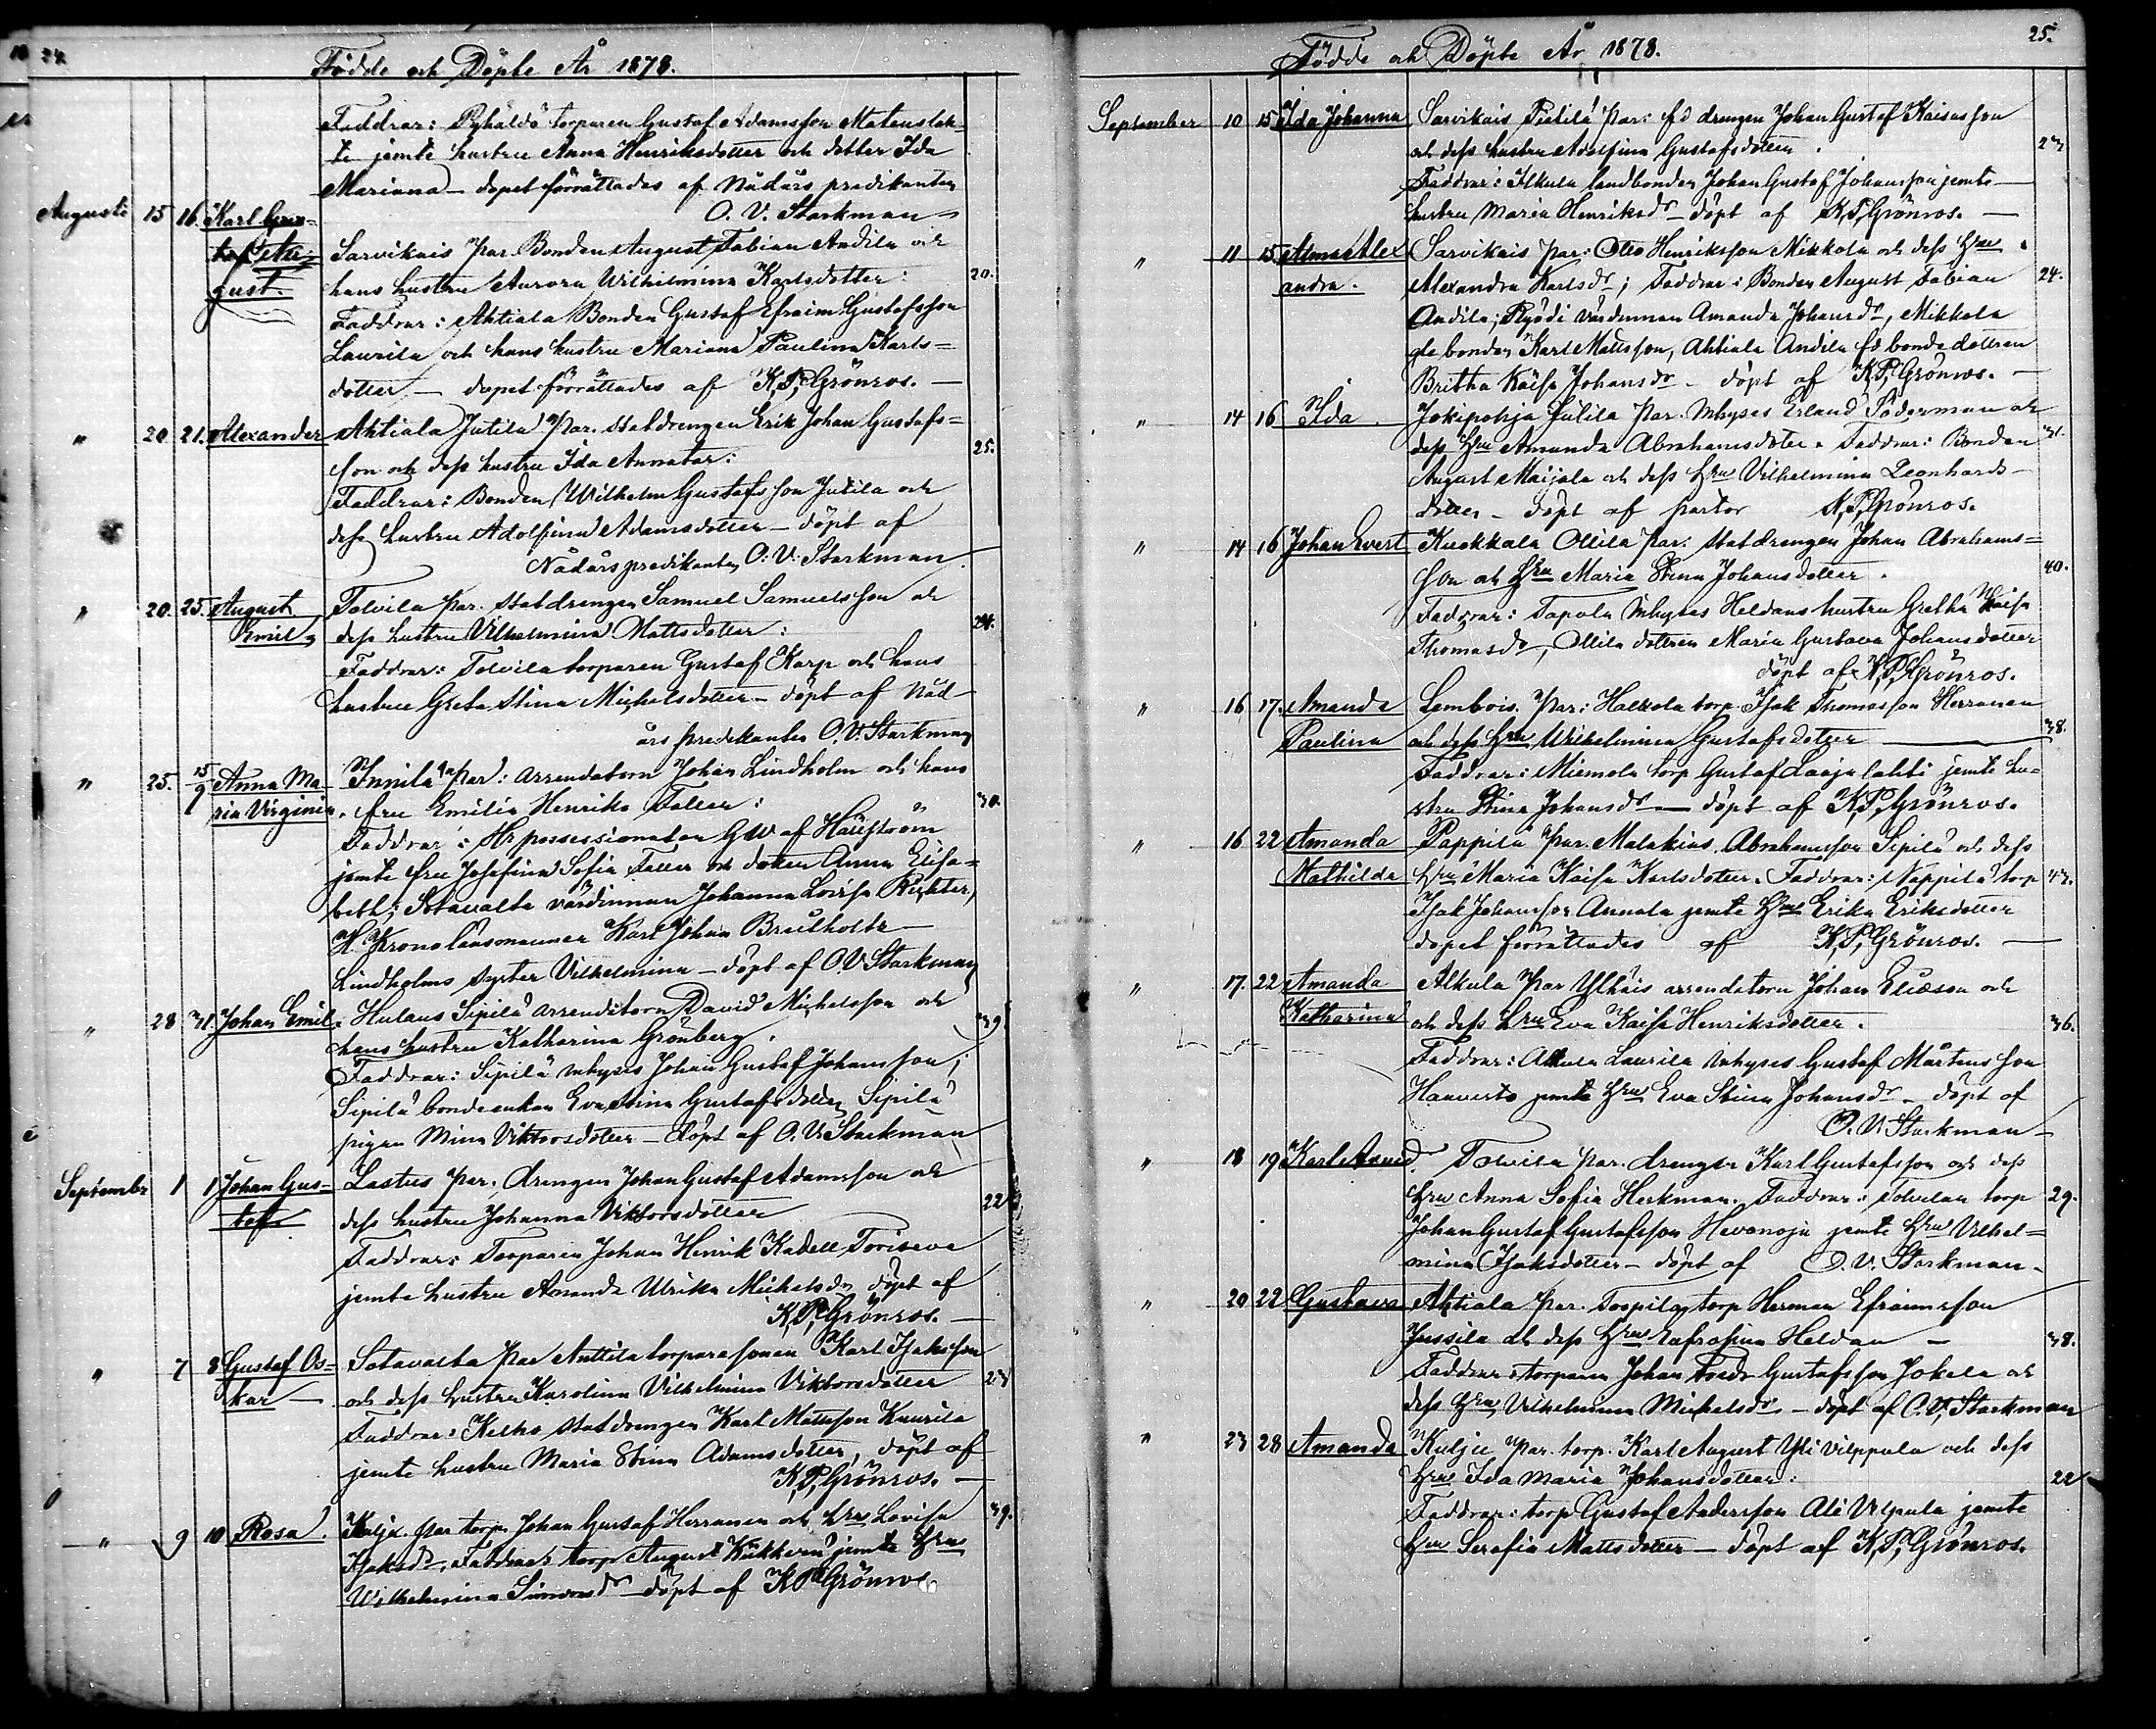 24.
Födde och Döpte År 1878.
Faddrar: Pyhäldö torparen Gustaf Adamsson
te jemte hustru Anna Henriksdotter och dotter Ida
Mariana – dopet förrättades af Nådårs predikanten
O. V. Starkman
Augusti 15 16. Karl Gus-
taf Au-
gust.
Sarvikais par. Bonden August Fabian Andila och
hans hustru Aurora Wilhelmina Karlsdotter: 20.
Faddrar: Ahtiala Bonden Gustaf Efraim Gustafsson
Laurila och hans hustru Mariana Paulina Karls=
dotter – dopet förrättades af K. P. Grönros. –
" 20 21. Alexander Ahtiala Jutila par. statdrengen Erik Johan Gustafs=
son och dess hustru Ida Annatar: 25.
Faddrar: Bonden Wilhelm Gustafsson Jutila och
dess hustru Adolfina Adamsdotter – döpt af
Nådårspredikanten O. V. Starkman
" 20. 25. August Tolvila par. statdrengen Samuel Samuelsson och
Emil dess hustru Vilhelmina Mattsdotter: 24.
Faddrar: Tolvila torparen Gustaf Karp och hans
hustru Greta Stina Michelsdotter – döpt af Nåd-
års predikanten O. V. Starkman
" 25. 15/9 Anna Ma- Innilä par: arrendatorn Johan Lindholm och hans
ria Virginia. fru Emilia Henrika Faller: 30.
Faddrar: Hr possessionaten GW af
jemte fru Josefina Sofia Faller och doter Anna Elisa=
beth; Sotavalta värdinnan Johanna Lovisa Richter,
H. Kronolänsmannen Karl Johan
Lindholms syster Vilhelmina – döpt af O V Starkman
" 28 31. Johan Emil. Hulaus Sipilä arrenditorn David Michelsson och
hans hustru Katharina Grönberg. 39.
Faddrar: Sipilä inhyses Johan Gustaf Johansson;
Sipilä bondeenkan Eva Stina Gustafsdotter, Sipilä
pigan Mina Viktorsdotter – döpt af O. V. Starkman
September 1 1 Johan Gus- Lastus par. drengen Johan Gustaf Adamsson och
taf dess hustru Johanna Viktorsdotter 22
Faddrar: Torparen Johan Henrik Kadell Toriseva
jemte hustru Amanda Ulrika Michelsdr döpt af
K. P. Grönros. –
" 7 8 Gustaf Os- Sotavalta par Anttila torparesonen Karl Isaksson
kar – och dess hustru Karolina Vilhelmina Viktorsdotter 23
Faddrar: Kelho statdrengen Karl Mattsson Knurila
jemte hustru Maria Stina Adamsdotter, döpt af
K. P. Grönros. –
" 9 10 Rosa. Kulju par torpn Johan Gustaf Herranen och hru Lovisa 39.
Isaksdr. Faddrar: torp August Kukkeru jemte hru
Wilhelmina Simonsdr döpt af K P Grönros.
25.
Födde och Döpte År 1878.
September 10 15 Ida Johanna Sarvikais Pietilä par: fd drengen Johan Gustaf Kaisasson
och dess hustru Adolfina Gustafsdotter. 23
Faddrar: Alkula landbonden Johan Gustaf Johansson jemte
hustru Maria Henriksdr – döpt af K. P. Grönros. –
" 11 15 Alma Alex Sarvikais par: Otto Henriksson Mikkola och dess hru
andra. Alexandra Karlsdr; Faddrar: Bonden August Fabian 24.
Andila; värdinnan Amanda Johansdr, Mikkola
gle bonden Karl Mattsson, Ahtiala Andila fd bonde dottren
Britha Kaisa Johansdr – döpt af K. P. Grönros. –
" 14 16 Ida. Jokipohja Jutila par. inhyses Erland Söderman och
dess hru Amanda Abrahamsdotter. Faddrar: Bonden 31.
August Maijala och dess hru Vilhelmina Leonhards-
dotter – döpt af pastor K. P. Grönros.
" 14 16 Johan Evert Kuokkala Ollila par: statdrengen Johan Abrahams=
son och hru Maria Stina Johansdotter. 40.
Faddrar: Tapola inhyses Heldans hustru Gretha Kaisa
Thomasdr, Ollila dottren Maria Gustava Johansdotter
döpt af K. P. Grönros.
" 16 17. Amanda Lembois par: Halkola torp. Isak Thomasson Herranen
Paulina och dess hru Wilhelmina Gustafsdotter – 38.
Faddrar: Miemola torp Gustaf Laajalahti jemte hu-
stru Stina Johansdr – döpt af K. P. Grönros.
" 16 22 Amanda Pappila par. Malakias Abrahamsson Sipilä och dess
Mathilda hru Maria Kaisa Karlsdotter. Faddrar: Nappila torp 43.
Isak Johansson Annala jemte hru Erika Eriksdotter
dopet förrättades af K. P. Grönros. –
" 17. 22 Amanda Alkula par Ylhäis arrendatorn Johan Elieson och
Katharina och dess hru Eva Kaisa Henriksdotter. 36.
Faddrar: Alkula Laurila inhyses Gustaf Mårtensson
Haavisto jemte hru Eva Stina Johansdr – döpt af
O. V. Starkman –
" 18 19 Karl Arvid. Tolvila par. drengen Karl Gustafsson och dess
hru Anna Sofia Herkman. Faddrar: Tolvilan torp 29.
Johan Gustaf Gustafsson Hevonoja jemte hru Vilhel=
mina Isaksdotter – döpt af O. V. Starkman.
" 20 22 Gustava Ahtiala par. torp Herman Efraimsson
Jussila och dess hru Eufrosina Heldan – 38.
Faddrar: torparen Johan Gustafsson Jokela och
dess hru Vilhelmina Michelsdr. – döpt af O. V. Starkman
" 23 28 Amanda Kulju par. torp. Karl August Yli Vilppula och dess
hru Ida Maria Johansdotter: 22
Faddrar: torp Gustaf Andersson Ali Vilpula jemte
hru Serafia Mattsdotter – döpt af K. P. Grönros.